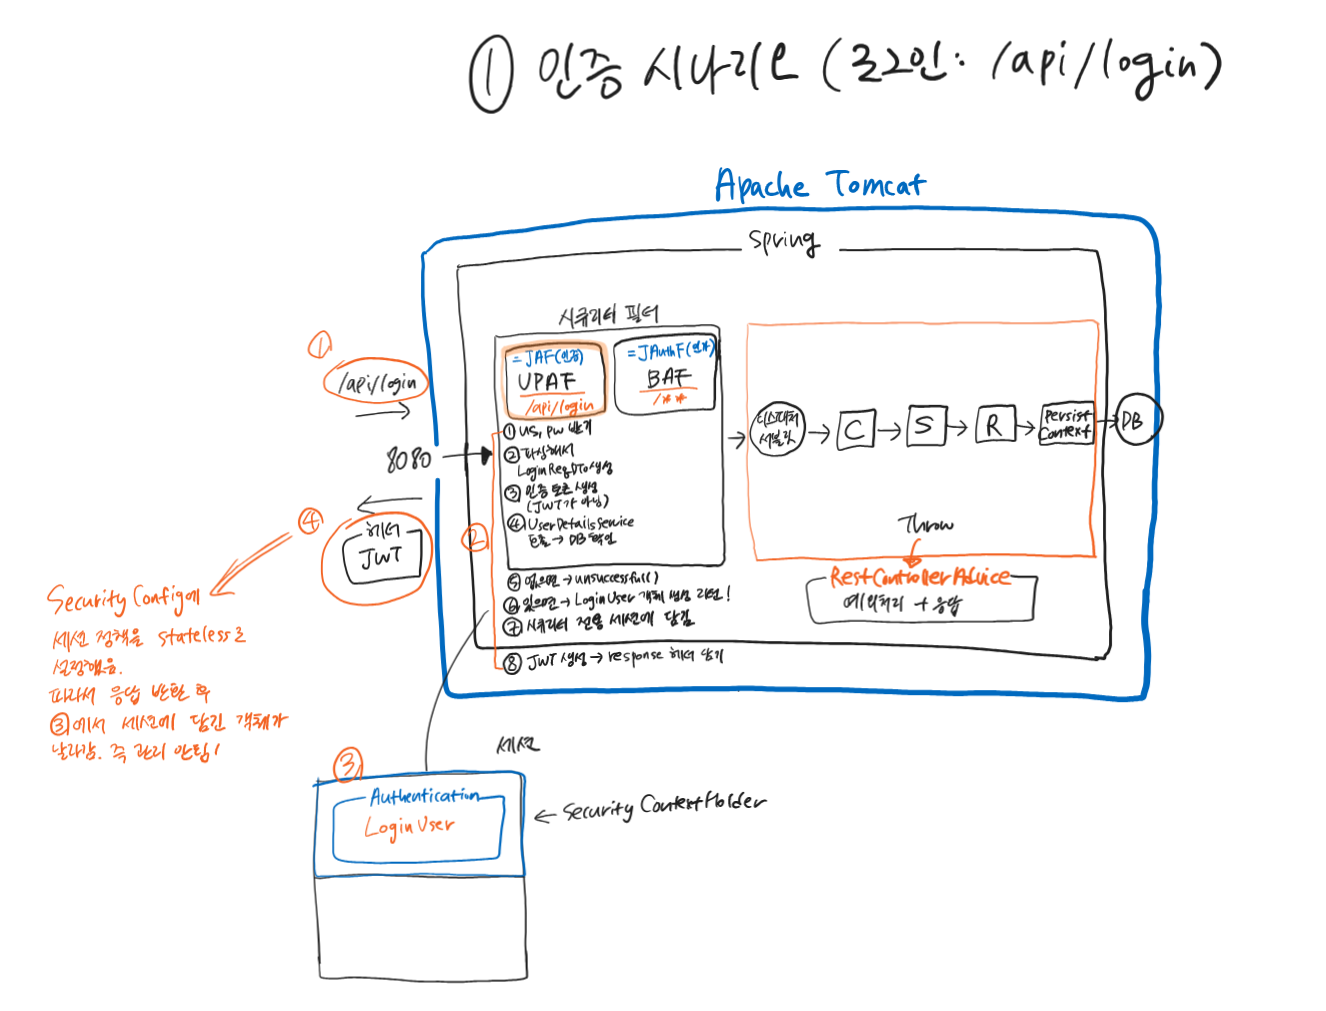 ① 인증 시나리오 (로그인: /api/login)
Apache Tomcat
Spring
시큐리티 필터
①
/api/login
8080
= JAF(인증)
UPAF
/api/login
= JAuthF(인가)
BAF
/**
① US, PW 받기
② 파싱해서
LoginReqDto생성
③ 인증 토큰 생성
(JWT가 아님)
④ UserDetailsService
호출 → DB 확인
⑤ 없으면 → unsuccessful()
⑥ 있으면 → LoginUser 객체 생성 리턴!
⑦ 시큐리티 전용 세션에 담김
⑧ JWT 생성 → response 헤더 담기
②
디스패처
서블릿
C
S
R
Persist
Context
DB
Throw
RestControllerAdvice
예외처리 + 응답
④
헤더
JWT
Security Config에
세션 정책을 stateless로
설정했음.
따라서 응답 반환 후
③에서 세션에 담긴 객체가
날라감. 즉 관리 안됨!
세션
③
Authentication
LoginUser
← Security ContextHolder